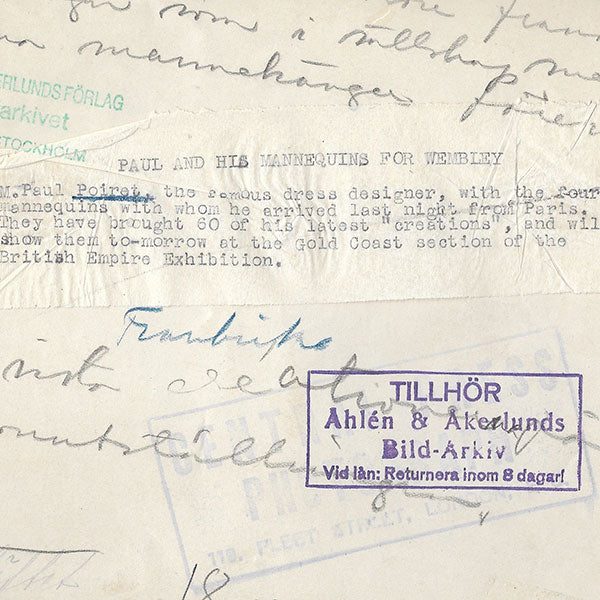 som i sällskap me
mannekänger
ERLUNDS FÖRLAG
arkivet
STOCKHOLM
PAUL AND HIS MANNEQUINS FOR WEMBLEY
M.Paul Poiret, the famous dress designer, with the four
mannequins with whom he arrived last night from Paris.
They have brought 60 of his latest "creations", and wil
show them to-morrow at the Gold Coast section of the
British Empire Exhibition.
TILLHÖR
Åhlén & Åkerlunds
Bild-Arkiv
Vid lån: Returnera inom 8 dagar!
CENTRAL PRESS
PHOTOS
119, FLEET STREET, LONDON.
18